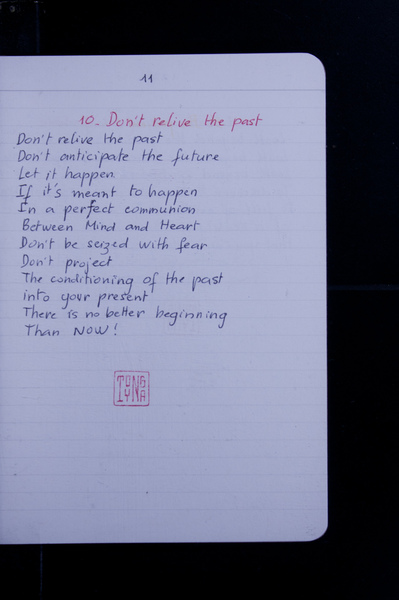 11
10. Don't relive the past
Don't relive the past
Don't anticipate the future
Let it happen
If it's meant to happen
In a perfect communion
Between Mind and Heart
Don't be seized with fear
Don't project
The conditioning of the past
into your present
There is no better beginning
Than NOW!
TONG
LYNA